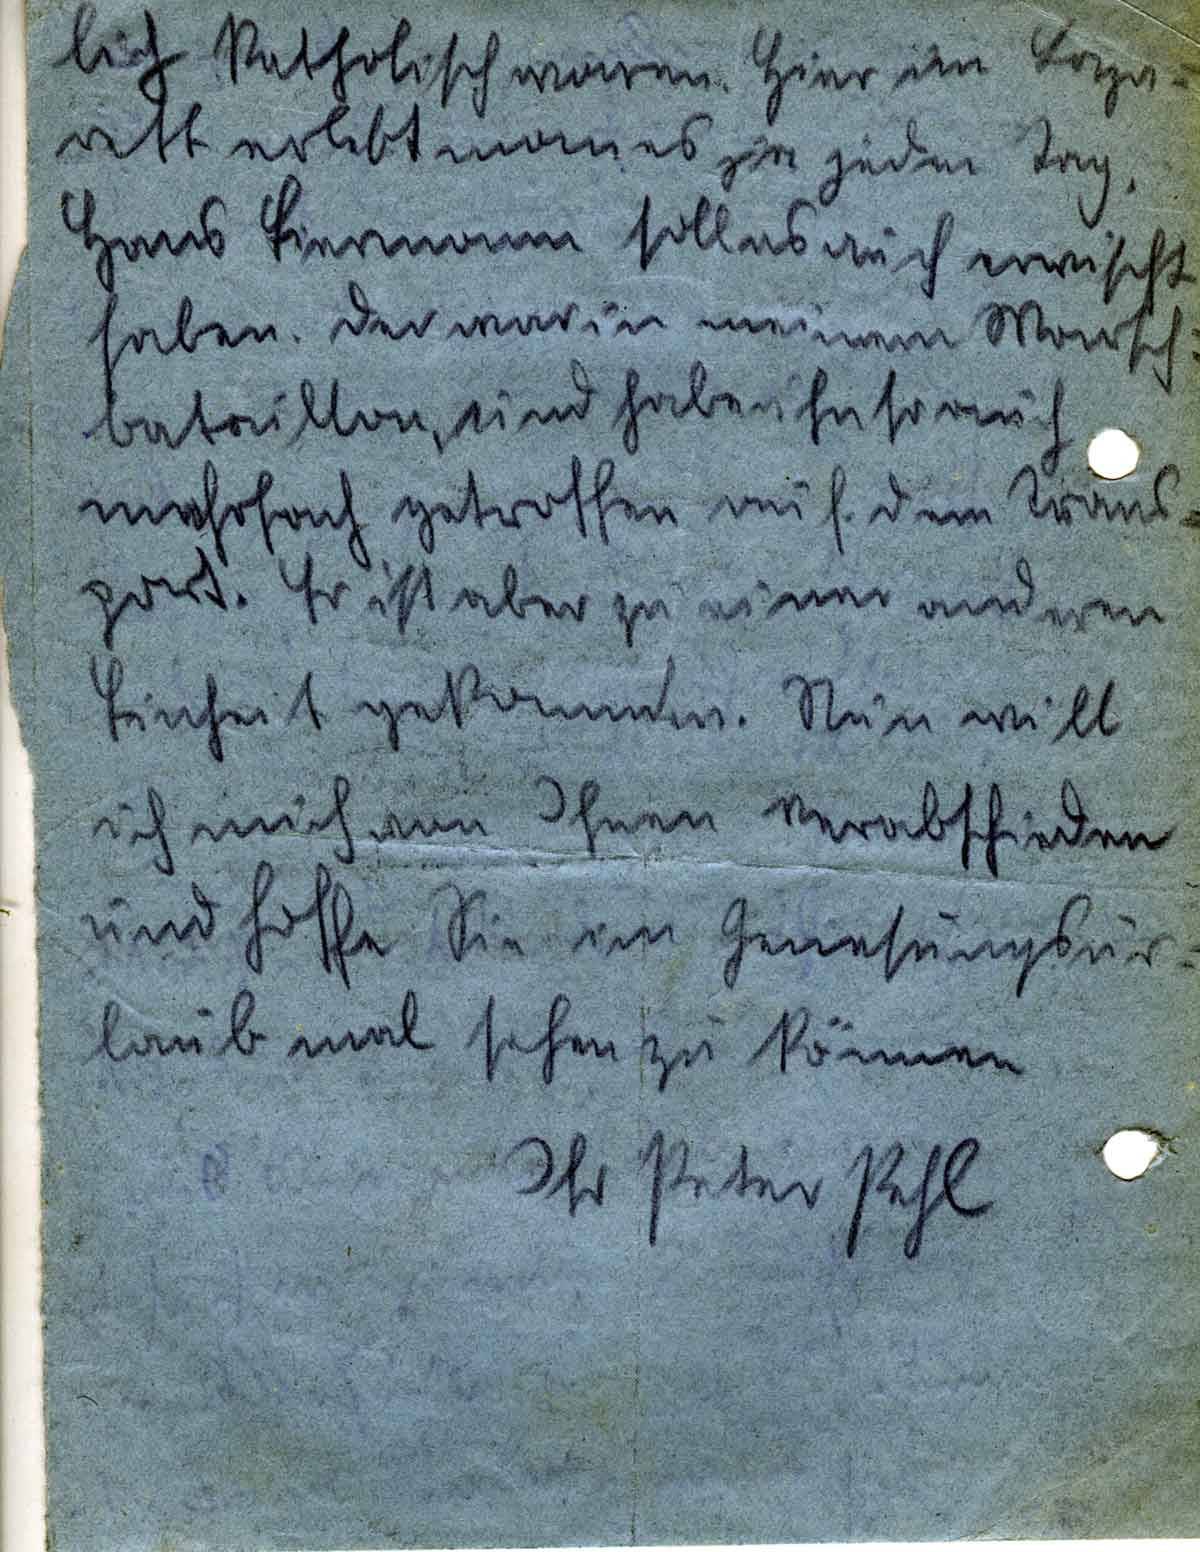 lich Katholisch waren. Hier im Laza-
rett erlebt man es ja jeden Tag.
Hans Biermann soll es auch erwischt
haben. Der war in meinem Marsch-
bataillon, und habe ihn so auch
mehrfach getroffen auf dem Trans-
port. Er ist aber zu einer anderen
Einheit gekommen. Nun will
ich mich von Ihnen verabschieden
und hoffe Sie im Genesungsur-
laub mal sehen zu können
Ihr Peter Pehl